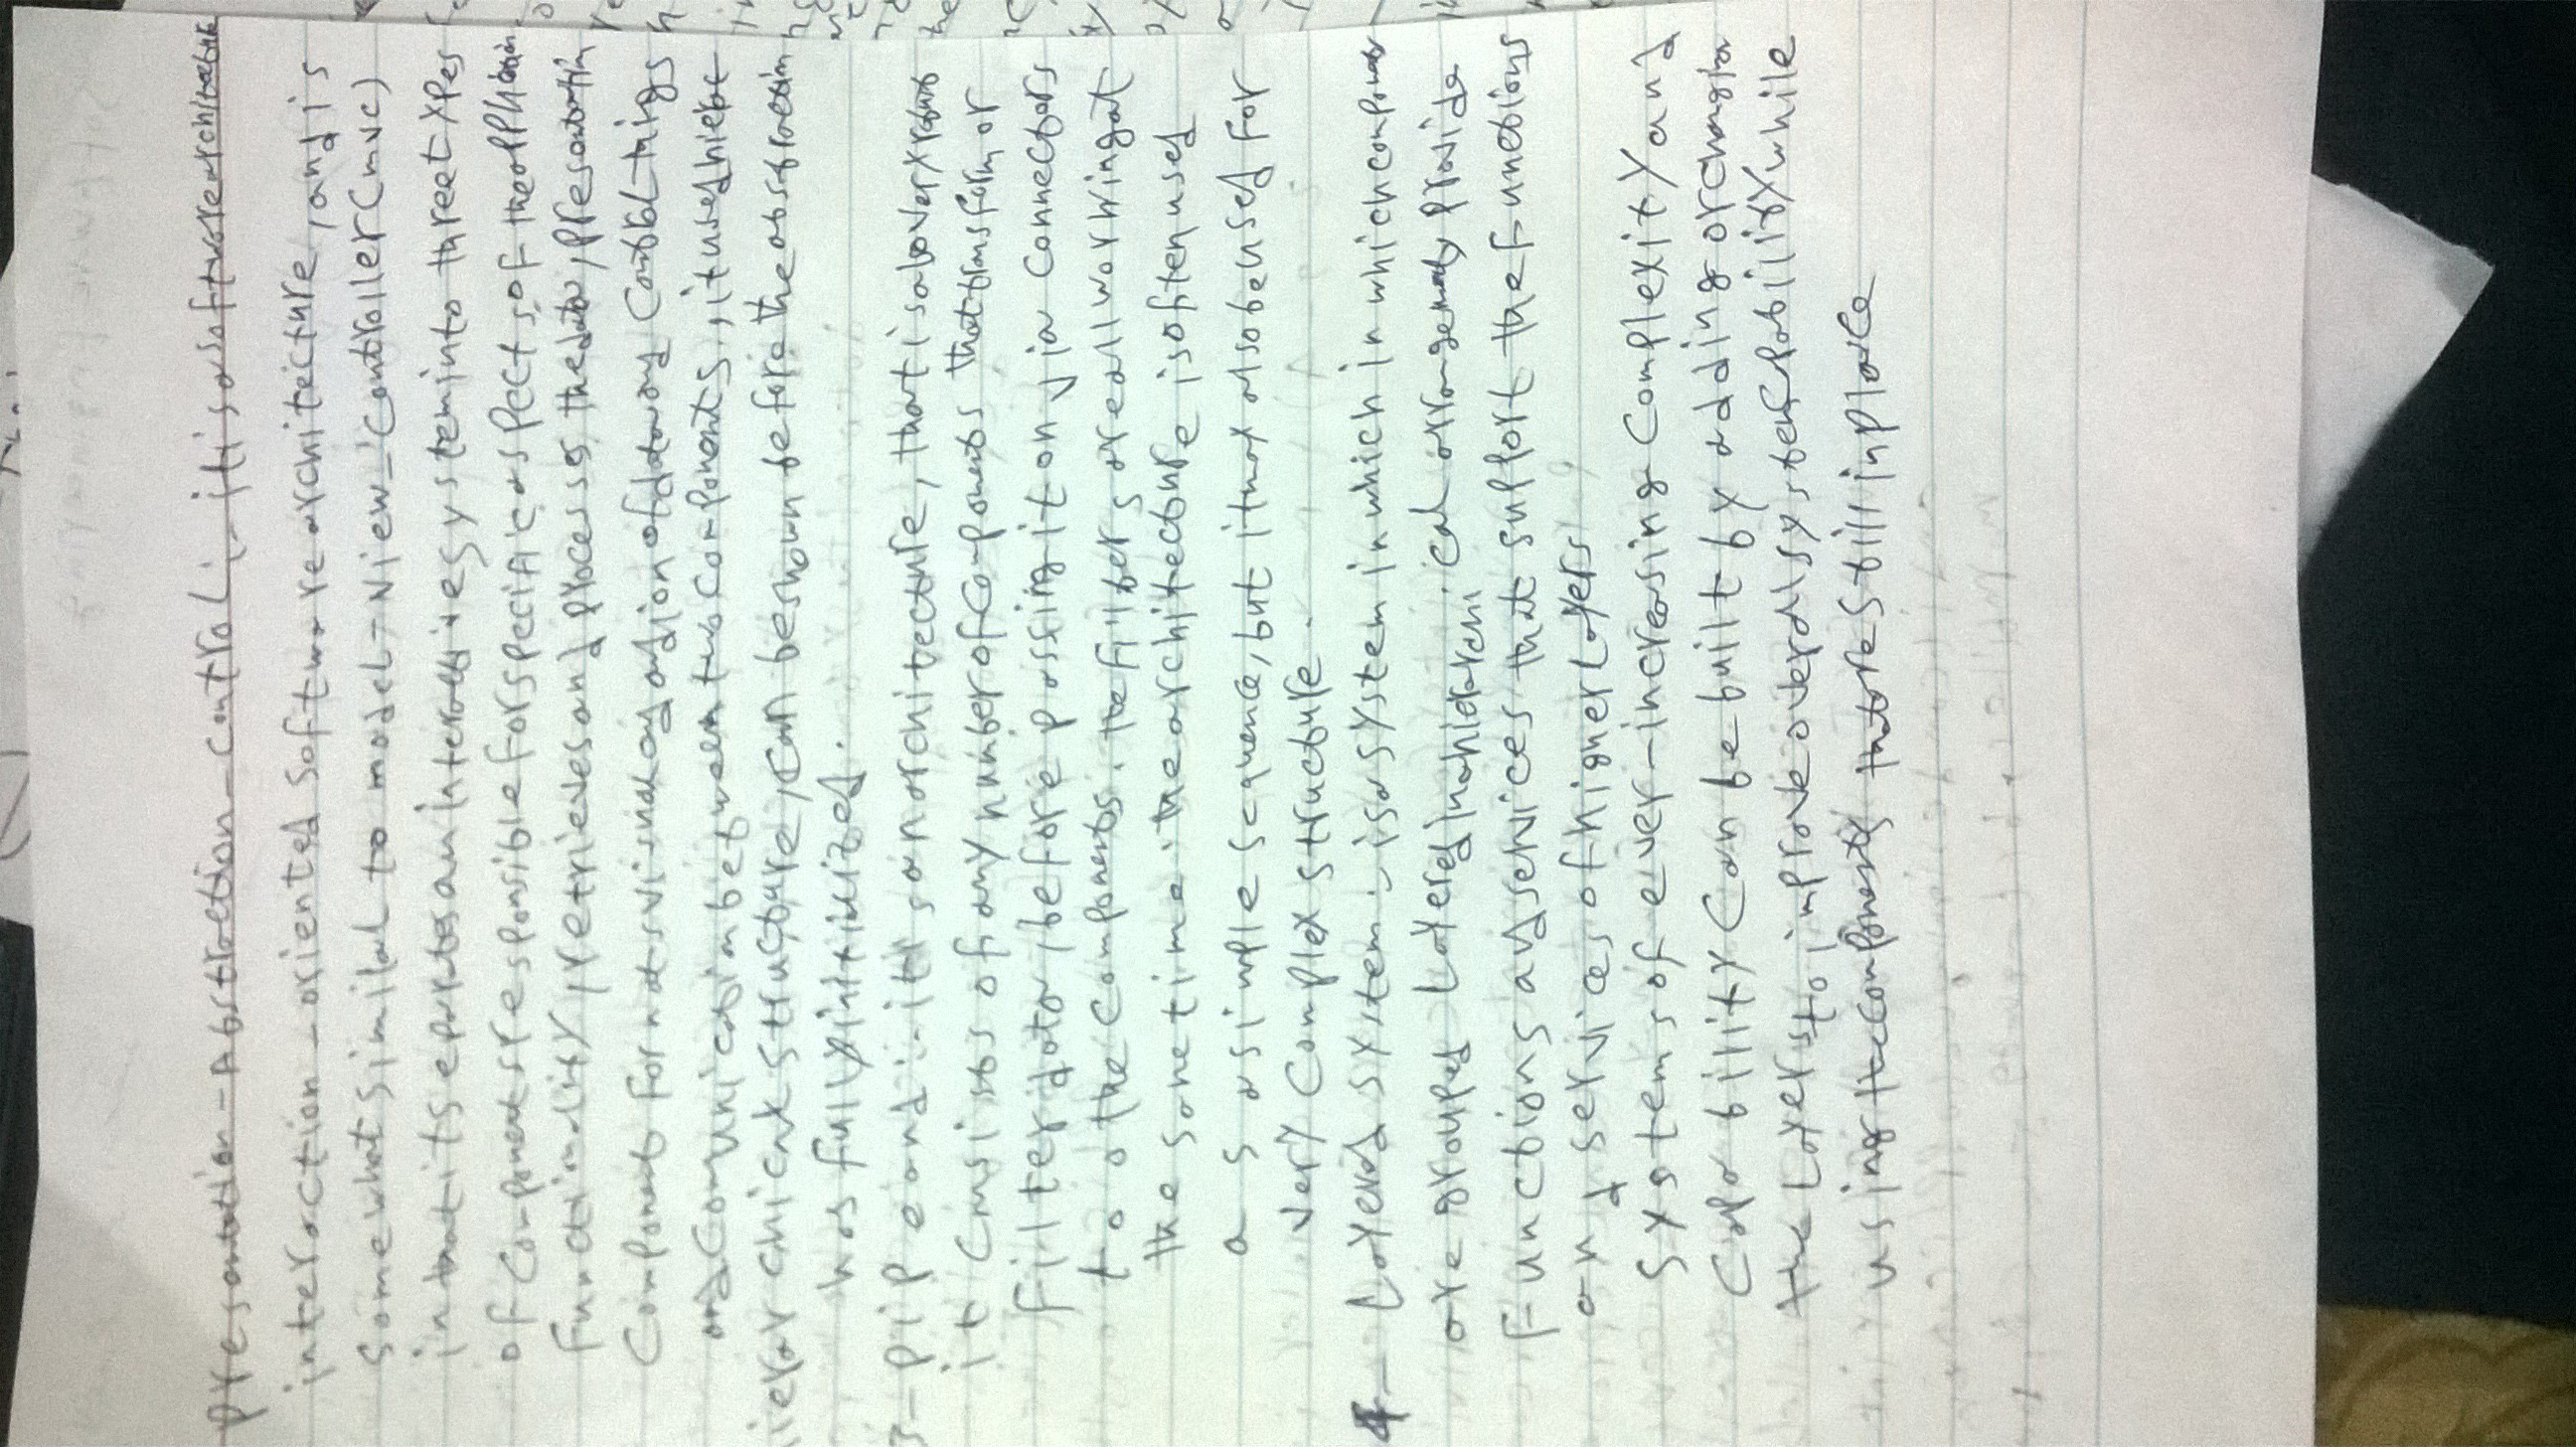 Presentation - Abstraction - Control :- it is a software architecture
interaction - oriented software architecture, and is
somewhat similar to model - View - Controller (mvc)
in that it seperates an interactive system into three types
of components responsible for specific aspects of the application
functionality, retrieves and processes the data, presentation
component formats visual and of data and control things
and communication between two components, it used hierar
ierarchical structure, can be shown before the abstraction
has fully initialized.
3- pipe and :- it is an architecture, that is also very robust
it consists of any number of components that transform or
filter data, before passing it on via connectors
to othe components. the filters are all working at
the same time. the architecture is often used
as a simple sequence, but it may also be used for
very complex structure.
4- Layered system :- is a system in which in which components
are grouped layered in a hierarchical arrangement, provide
functions and services that support the functions
and services of higher layers
systems of ever-increasing complexity and
capability can be built by adding or changing
the layers to improve overall system capability while
using the components that are still in place